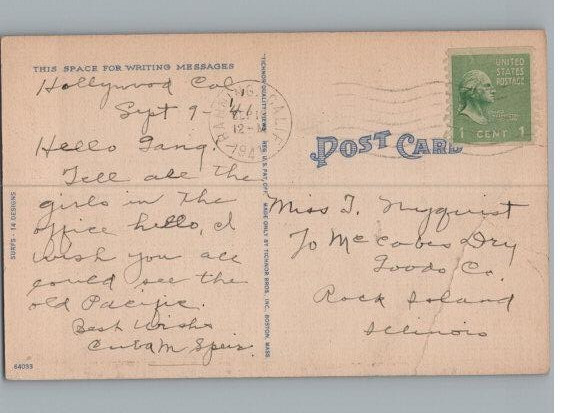 THIS SPACE FOR WRITING MESSAGES
Hollywood Cal
Sept 9-41
Hello Gang
Tell all the
girls in the
office hello, I
wish you all
could see the
old Pacific.
Best Wishes
M.
64033
5 DESIGNS
TICHNOR QUALITY VIEWS REG. U.S. PAT. OFF. MADE ONLY BY TICHNOR BROS., INC., BOSTON, MASS.
CALIF
12
194
UNITED
STATES
POSTAGE
1 CENT 1
POST CARD
Miss T. Nyquist
To McCabes Dry
Goods Co.
Rock Island
Illinois